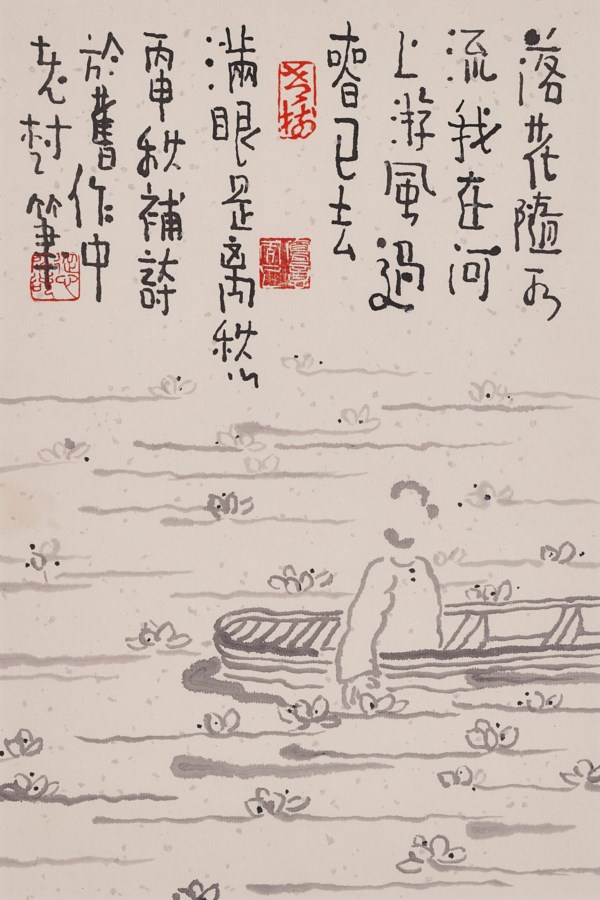 落花隨水
流我在河
上游風過
春已去
滿眼是离愁
丙申秋補詩
於舊作中
老村筆
老村